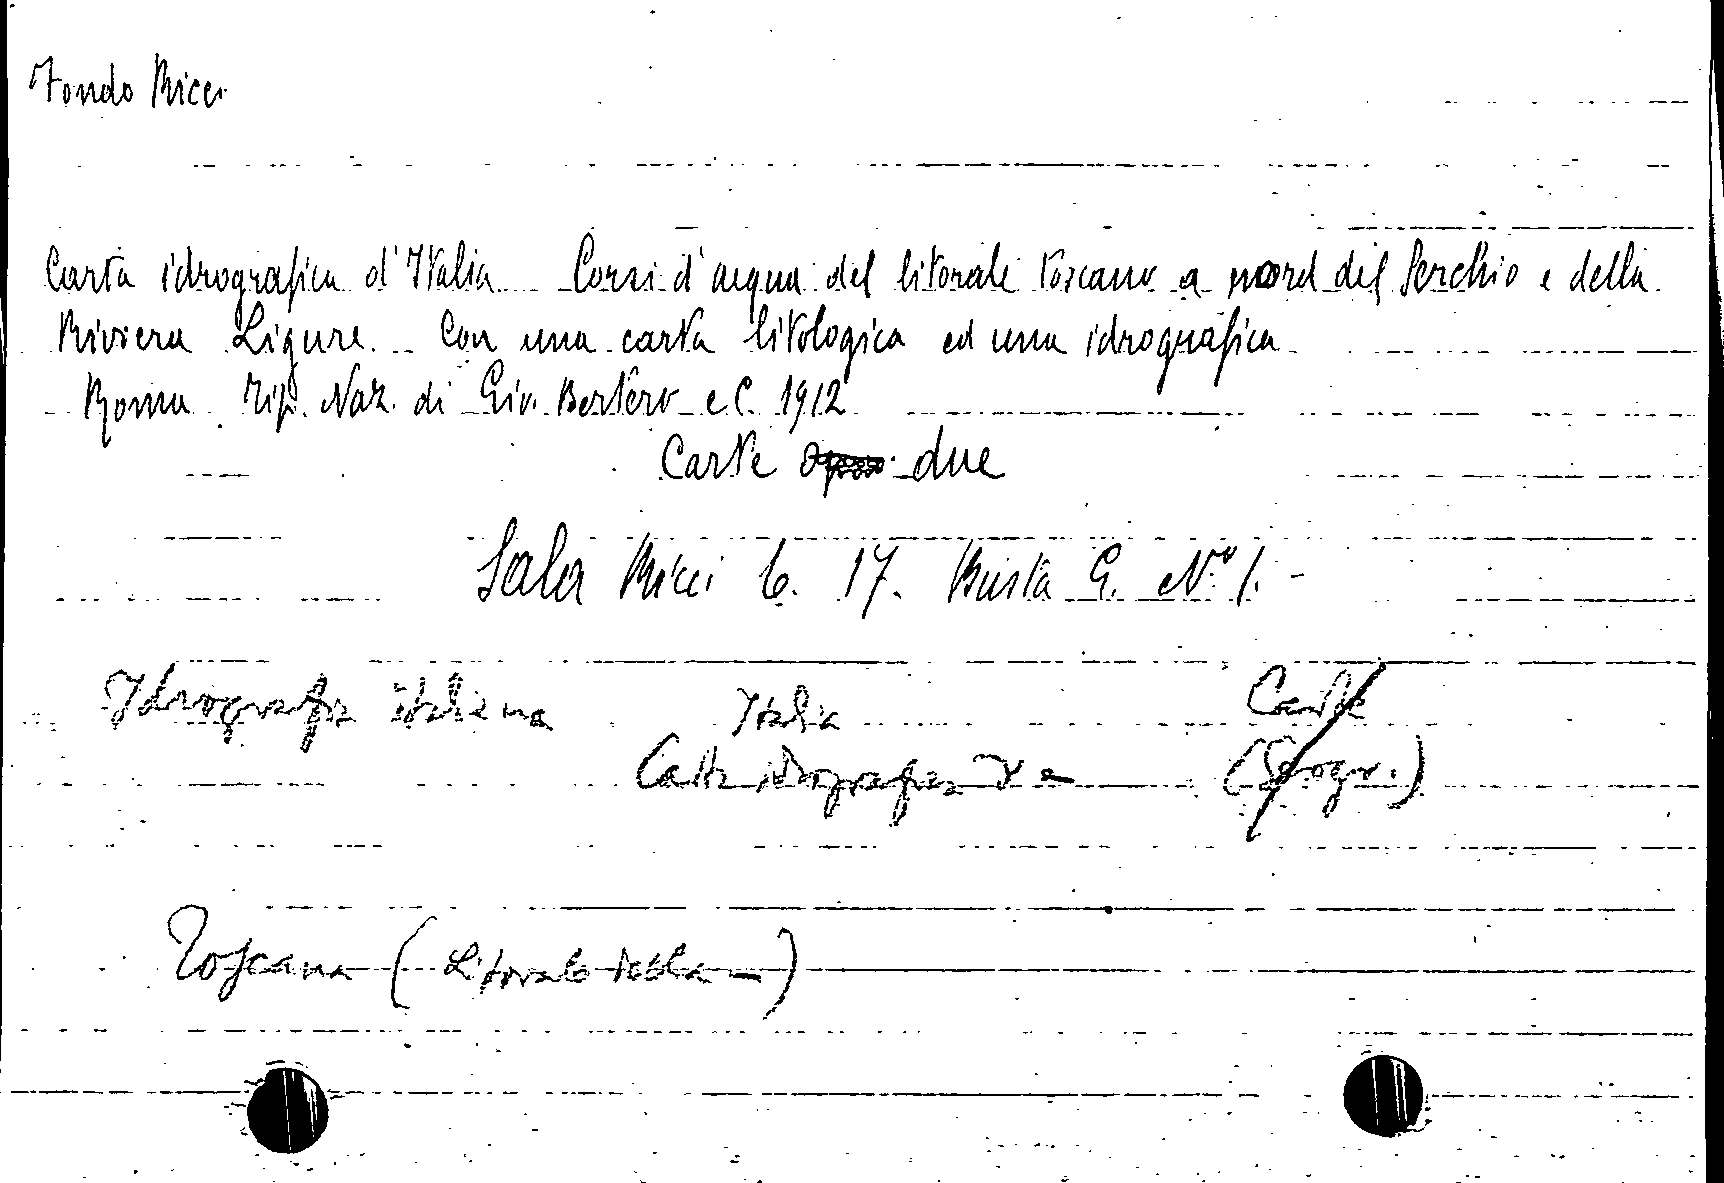 Fondo Ricci
Carta idrografica d'Italia Corsi d'acqua del litorale toscano a nord del Serchio e della
Riviera Ligure. Con una carta litologica ed una idrografica
Roma. Tip. Naz. di Gio. Bertero e C. 1912
Carte due
Sala Ricci 6. 17. Busta G. No 1. -
Idrografia italiana Italia Carte
Carta idrografica (Geogr.)
Toscana (Litorale della -)